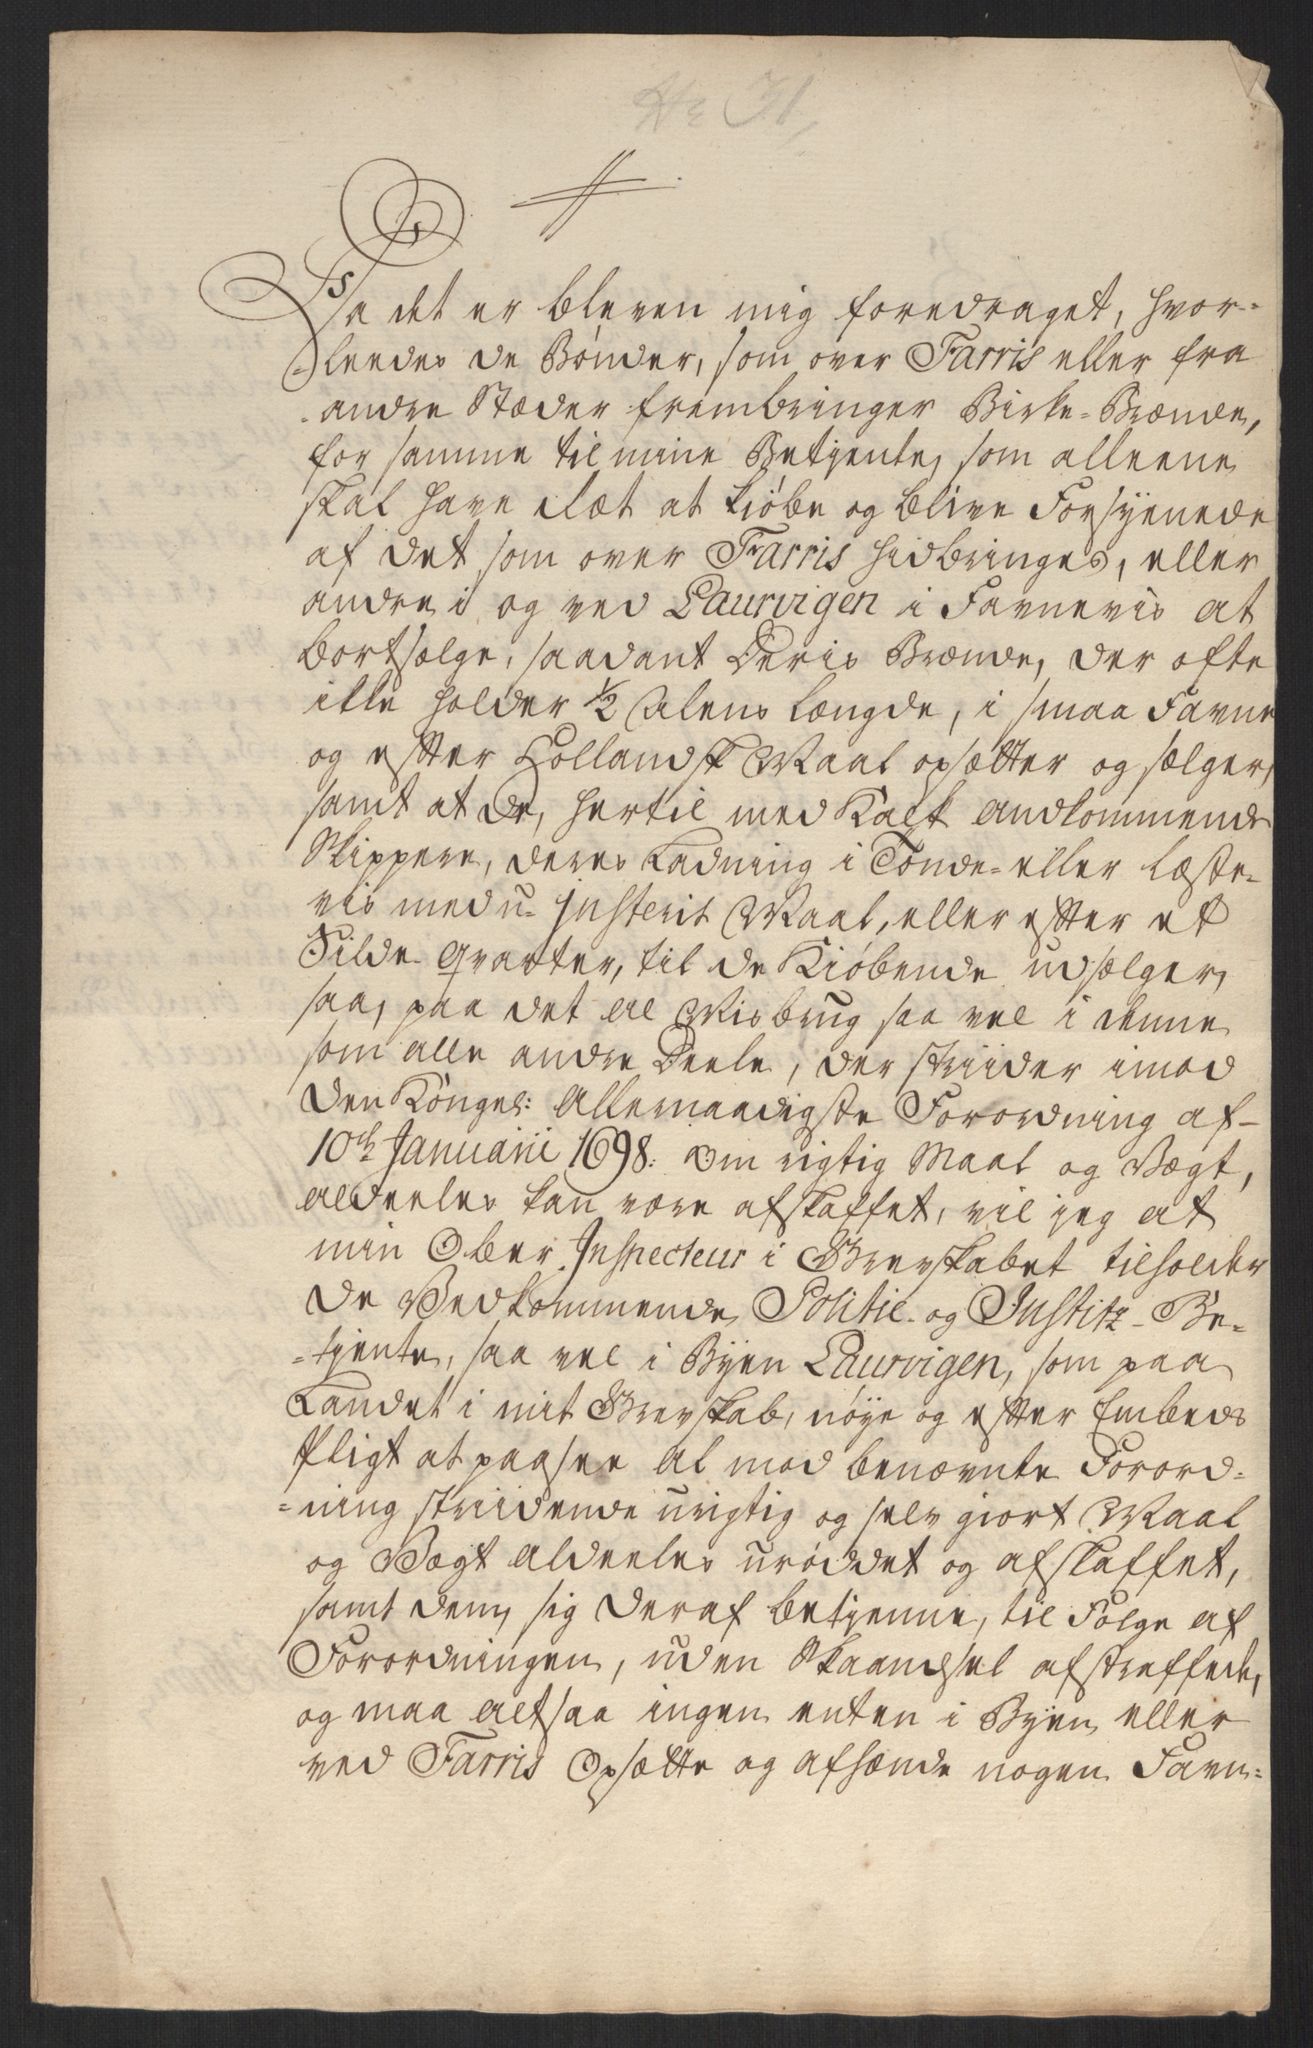 No 31,
Sa det er bleven mig foredraget, hvor-
=leedes de Bønder, som over Farris eller fra
andre Stæder frembringer Birke-Brænde,
for samme til mine Betjente, som alleene
skal have Læt at kiøbe og blive Forsÿenede
af det som over Farris hidbringes, eller
andre i og ved Laurvigen i Favneviis at
bortsælge, saadant Deris Brænde, der ofte
ikke holder 1/2 Alens længde, i smaa Favne
og efter Hollandsk Maal opsætter og sælger,
samt at de, hertil med Kalk andkommende
Skippere, deres Ladning i Tønde- eller læste-
vis med u-justerit Maal, eller efter et
Silde qvarter, til de Kiøbende udsælger,
saa, paa det al Misbrug saa vel i denne
som alle andre Deele, der striider imod
Den Köngel: Allernaadigste Forordning af
10de Januarii 1698: Om rigtig Maal og Vægt,
aldeeles kan være afskaffet, vil jeg at
min Ober-Inspecteur i Grevskabet tilholder
De Vedkommende Politie- og Justitz-Be-
=tjente, saa vel i Byen Laurvigen, som paa
Landet i mit Grevskab, nøye og efter Embeds
Pligt at paasee al mod benævnte Forord-
=ning striidende urigtig og selv giort Maal
og Vægt aldeeles urøddet og afskaffet,
samt dem, sig deraf betjenne, til Følge af
Forordningen, uden Skaandsel afstraffede,
og maa altsaa ingen enten i Byen eller
ved Farris Opsætte og afhænde nogen Favn-